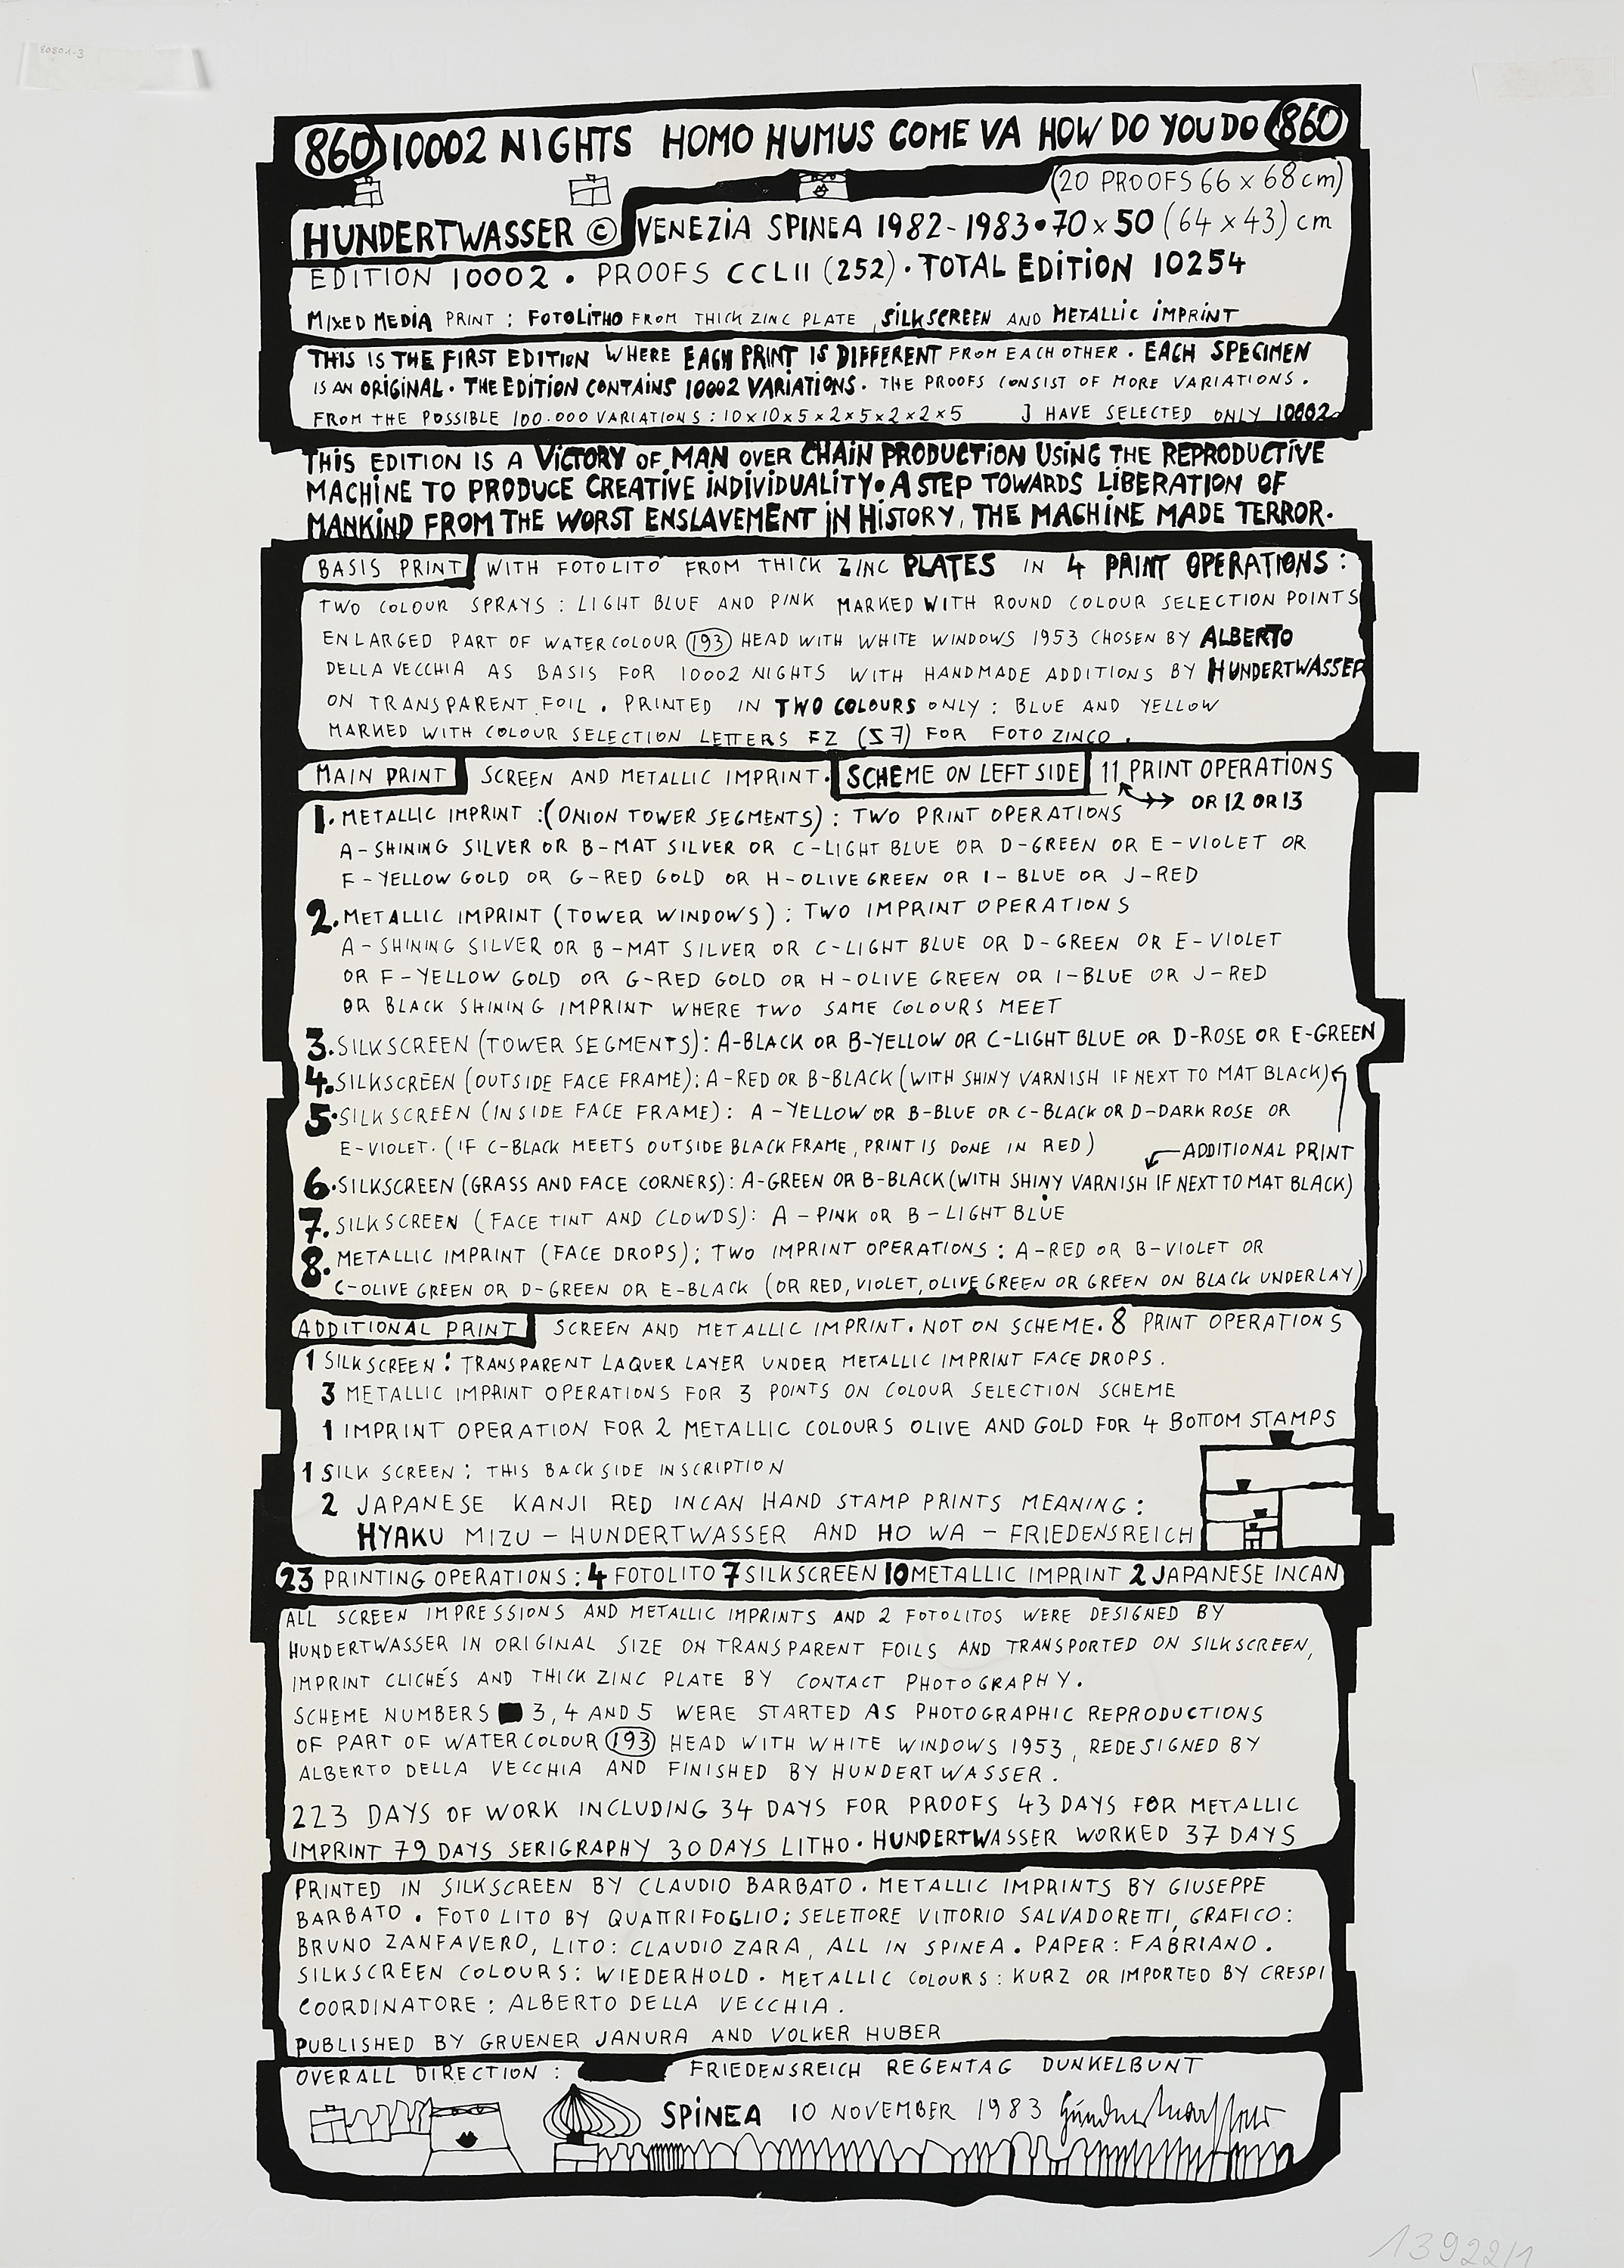 80801-3
860 10002 NIGHTS HOMO HUMUS COME VA HOW DO YOU DO 860
(20 PROOFS 66 x 68 cm)
HUNDERTWASSER © VENEZiA SPINEA 1982-1983 • 70 x 50 (64 x 43) cm
EDITION 10002 . PROOFS CCLII (252) . TOTAL EDITION 10254
MIXED MEDIA PRINT : FOTOLITHO FROM THICK ZINC PLATE , SILKSCREEN AND METALLIC IMPRINT
THIS IS THE FIRST EDITION WHERE EACH PRINT IS DIFFERENT FROM EACH OTHER . EACH SPECIMEN
IS AN ORIGINAL . THE EDITION CONTAINS 10002 VARIATIONS . THE PROOFS CONSIST OF MORE VARIATIONS .
FROM THE POSSIBLE 100.000 VARIATIONS : 10x10x5x2x5x2x2x5 J HAVE SELECTED ONLY 10002
THIS EDITION IS A VICTORY OF MAN OVER CHAIN PRODUCTION USING THE REPRODUCTIVE
MACHINE TO PRODUCE CREATIVE INDIVIDUALITY • A STEP TOWARDS LIBERATION OF
MANKIND FROM THE WORST ENSLAVEMENT IN HISTORY, THE MACHINE MADE TERROR .
BASIS PRINT WITH FOTOLITO FROM THICK ZINC PLATES IN 4 PRINT OPERATIONS :
TWO COLOUR SPRAYS : LIGHT BLUE AND PINK MARKED WITH ROUND COLOUR SELECTION POINTS
ENLARGED PART OF WATERCOLOUR 193 HEAD WITH WHITE WINDOWS 1953 CHOSEN BY ALBERTO
DELLA VECCHIA AS BASIS FOR 10002 NIGHTS WITH HANDMADE ADDITIONS BY HUNDERTWASSER
ON TRANSPARENT FOIL . PRINTED IN TWO COLOURS ONLY : BLUE AND YELLOW
MARKED WITH COLOUR SELECTION LETTERS FZ (S7) FOR FOTO ZINCO .
MAIN PRINT SCREEN AND METALLIC IMPRINT . SCHEME ON LEFT SIDE 11 PRINT OPERATIONS
OR 12 OR 13
1. METALLIC IMPRINT : (ONION TOWER SEGMENTS) : TWO PRINT OPERATIONS
A-SHINING SILVER OR B-MAT SILVER OR C-LIGHT BLUE OR D-GREEN OR E-VIOLET OR
F-YELLOW GOLD OR G-RED GOLD OR H-OLIVE GREEN OR I-BLUE OR J-RED
2. METALLIC IMPRINT (TOWER WINDOWS) : TWO IMPRINT OPERATIONS
A-SHINING SILVER OR B-MAT SILVER OR C-LIGHT BLUE OR D-GREEN OR E-VIOLET
OR F-YELLOW GOLD OR G-RED GOLD OR H-OLIVE GREEN OR I-BLUE OR J-RED
OR BLACK SHINING IMPRINT WHERE TWO SAME COLOURS MEET
3. SILKSCREEN (TOWER SEGMENTS) : A-BLACK OR B-YELLOW OR C-LIGHT BLUE OR D-ROSE OR E-GREEN
4. SILKSCREEN (OUTSIDE FACE FRAME) : A-RED OR B-BLACK (WITH SHINY VARNISH IF NEXT TO MAT BLACK)
5. SILKSCREEN (INSIDE FACE FRAME) : A-YELLOW OR B-BLUE OR C-BLACK OR D-DARK ROSE OR
E-VIOLET . (IF C-BLACK MEETS OUTSIDE BLACK FRAME, PRINT IS DONE IN RED)
ADDITIONAL PRINT
6. SILKSCREEN (GRASS AND FACE CORNERS) : A-GREEN OR B-BLACK (WITH SHINY VARNISH IF NEXT TO MAT BLACK)
7. SILKSCREEN (FACE TINT AND CLOWDS) : A-PINK OR B-LIGHT BLUE
8. METALLIC IMPRINT (FACE DROPS) ; TWO IMPRINT OPERATIONS : A-RED OR B-VIOLET OR
C-OLIVE GREEN OR D-GREEN OR E-BLACK (OR RED, VIOLET, OLIVE GREEN OR GREEN ON BLACK UNDERLAY)
ADDITIONAL PRINT SCREEN AND METALLIC IMPRINT . NOT ON SCHEME . 8 PRINT OPERATIONS
1 SILKSCREEN : TRANSPARENT LAQUER LAYER UNDER METALLIC IMPRINT FACE DROPS .
3 METALLIC IMPRINT OPERATIONS FOR 3 POINTS ON COLOUR SELECTION SCHEME
1 IMPRINT OPERATION FOR 2 METALLIC COLOURS OLIVE AND GOLD FOR 4 BOTTOM STAMPS
1 SILK SCREEN : THIS BACKSIDE INSCRIPTION
2 JAPANESE KANJI RED INCAN HAND STAMP PRINTS MEANING :
HYAKU MIZU - HUNDERTWASSER AND HO WA - FRIEDENSREICH
23 PRINTING OPERATIONS : 4 FOTOLITO 7 SILKSCREEN 10 METALLIC IMPRINT 2 JAPANESE INCAN
ALL SCREEN IMPRESSIONS AND METALLIC IMPRINTS AND 2 FOTOLITOS WERE DESIGNED BY
HUNDERTWASSER IN ORIGINAL SIZE ON TRANSPARENT FOILS AND TRANSPORTED ON SILKSCREEN,
IMPRINT CLICHÉS AND THICK ZINC PLATE BY CONTACT PHOTOGRAPHY .
SCHEME NUMBERS 3, 4 AND 5 WERE STARTED AS PHOTOGRAPHIC REPRODUCTIONS
OF PART OF WATERCOLOUR 193 HEAD WITH WHITE WINDOWS 1953 , REDESIGNED BY
ALBERTO DELLA VECCHIA AND FINISHED BY HUNDERTWASSER .
223 DAYS OF WORK INCLUDING 34 DAYS FOR PROOFS 43 DAYS FOR METALLIC
IMPRINT 79 DAYS SERIGRAPHY 30 DAYS LITHO . HUNDERTWASSER WORKED 37 DAYS
PRINTED IN SILKSCREEN BY CLAUDIO BARBATO . METALLIC IMPRINTS BY GIUSEPPE
BARBATO . FOTOLITO BY QUATTRIFOGLIO ; SELETTORE VITTORIO SALVADORETTI, GRAFICO :
BRUNO ZANFAVERO, LITO : CLAUDIO ZARA , ALL IN SPINEA . PAPER : FABRIANO .
SILKSCREEN COLOURS : WIEDERHOLD . METALLIC COLOURS : KURZ OR IMPORTED BY CRESPI
COORDINATORE : ALBERTO DELLA VECCHIA .
PUBLISHED BY GRUENER JANURA AND VOLKER HUBER
OVERALL DIRECTION : FRIEDENSREICH REGENTAG DUNKELBUNT
SPINEA 10 NOVEMBER 1983 Hundertwasser
13922/1